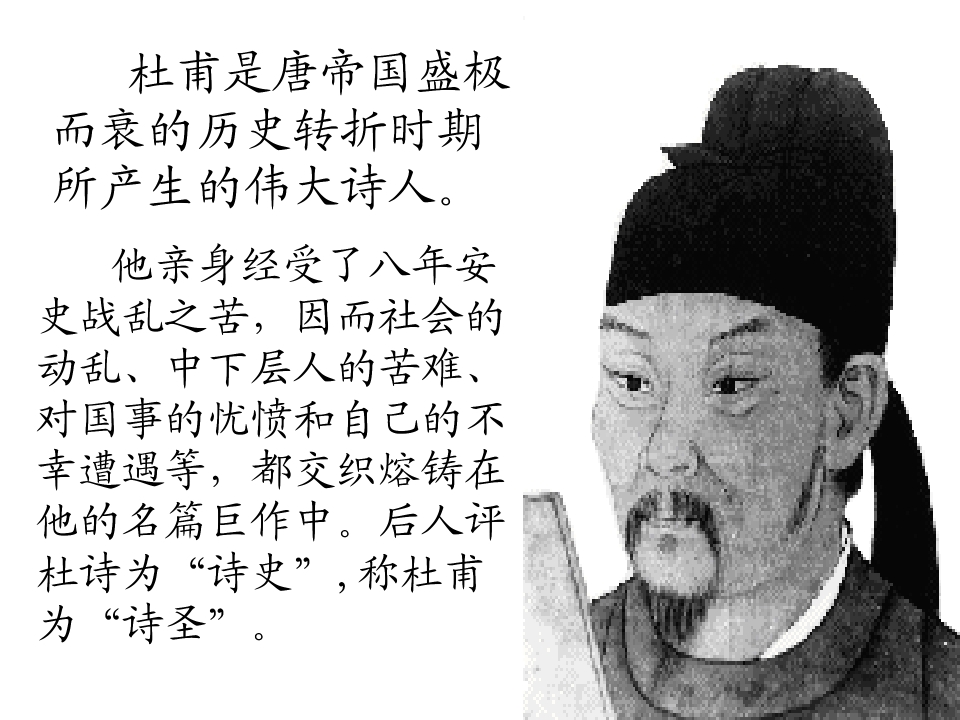 杜甫是唐帝国盛极
而衰的历史转折时期
所产生的伟大诗人。
他亲身经受了八年安
史战乱之苦，因而社会的
动乱、中下层人的苦难、
对国事的忧愤和自己的不
幸遭遇等，都交织熔铸在
他的名篇巨作中。后人评
杜诗为“诗史”,称杜甫
为“诗圣”。